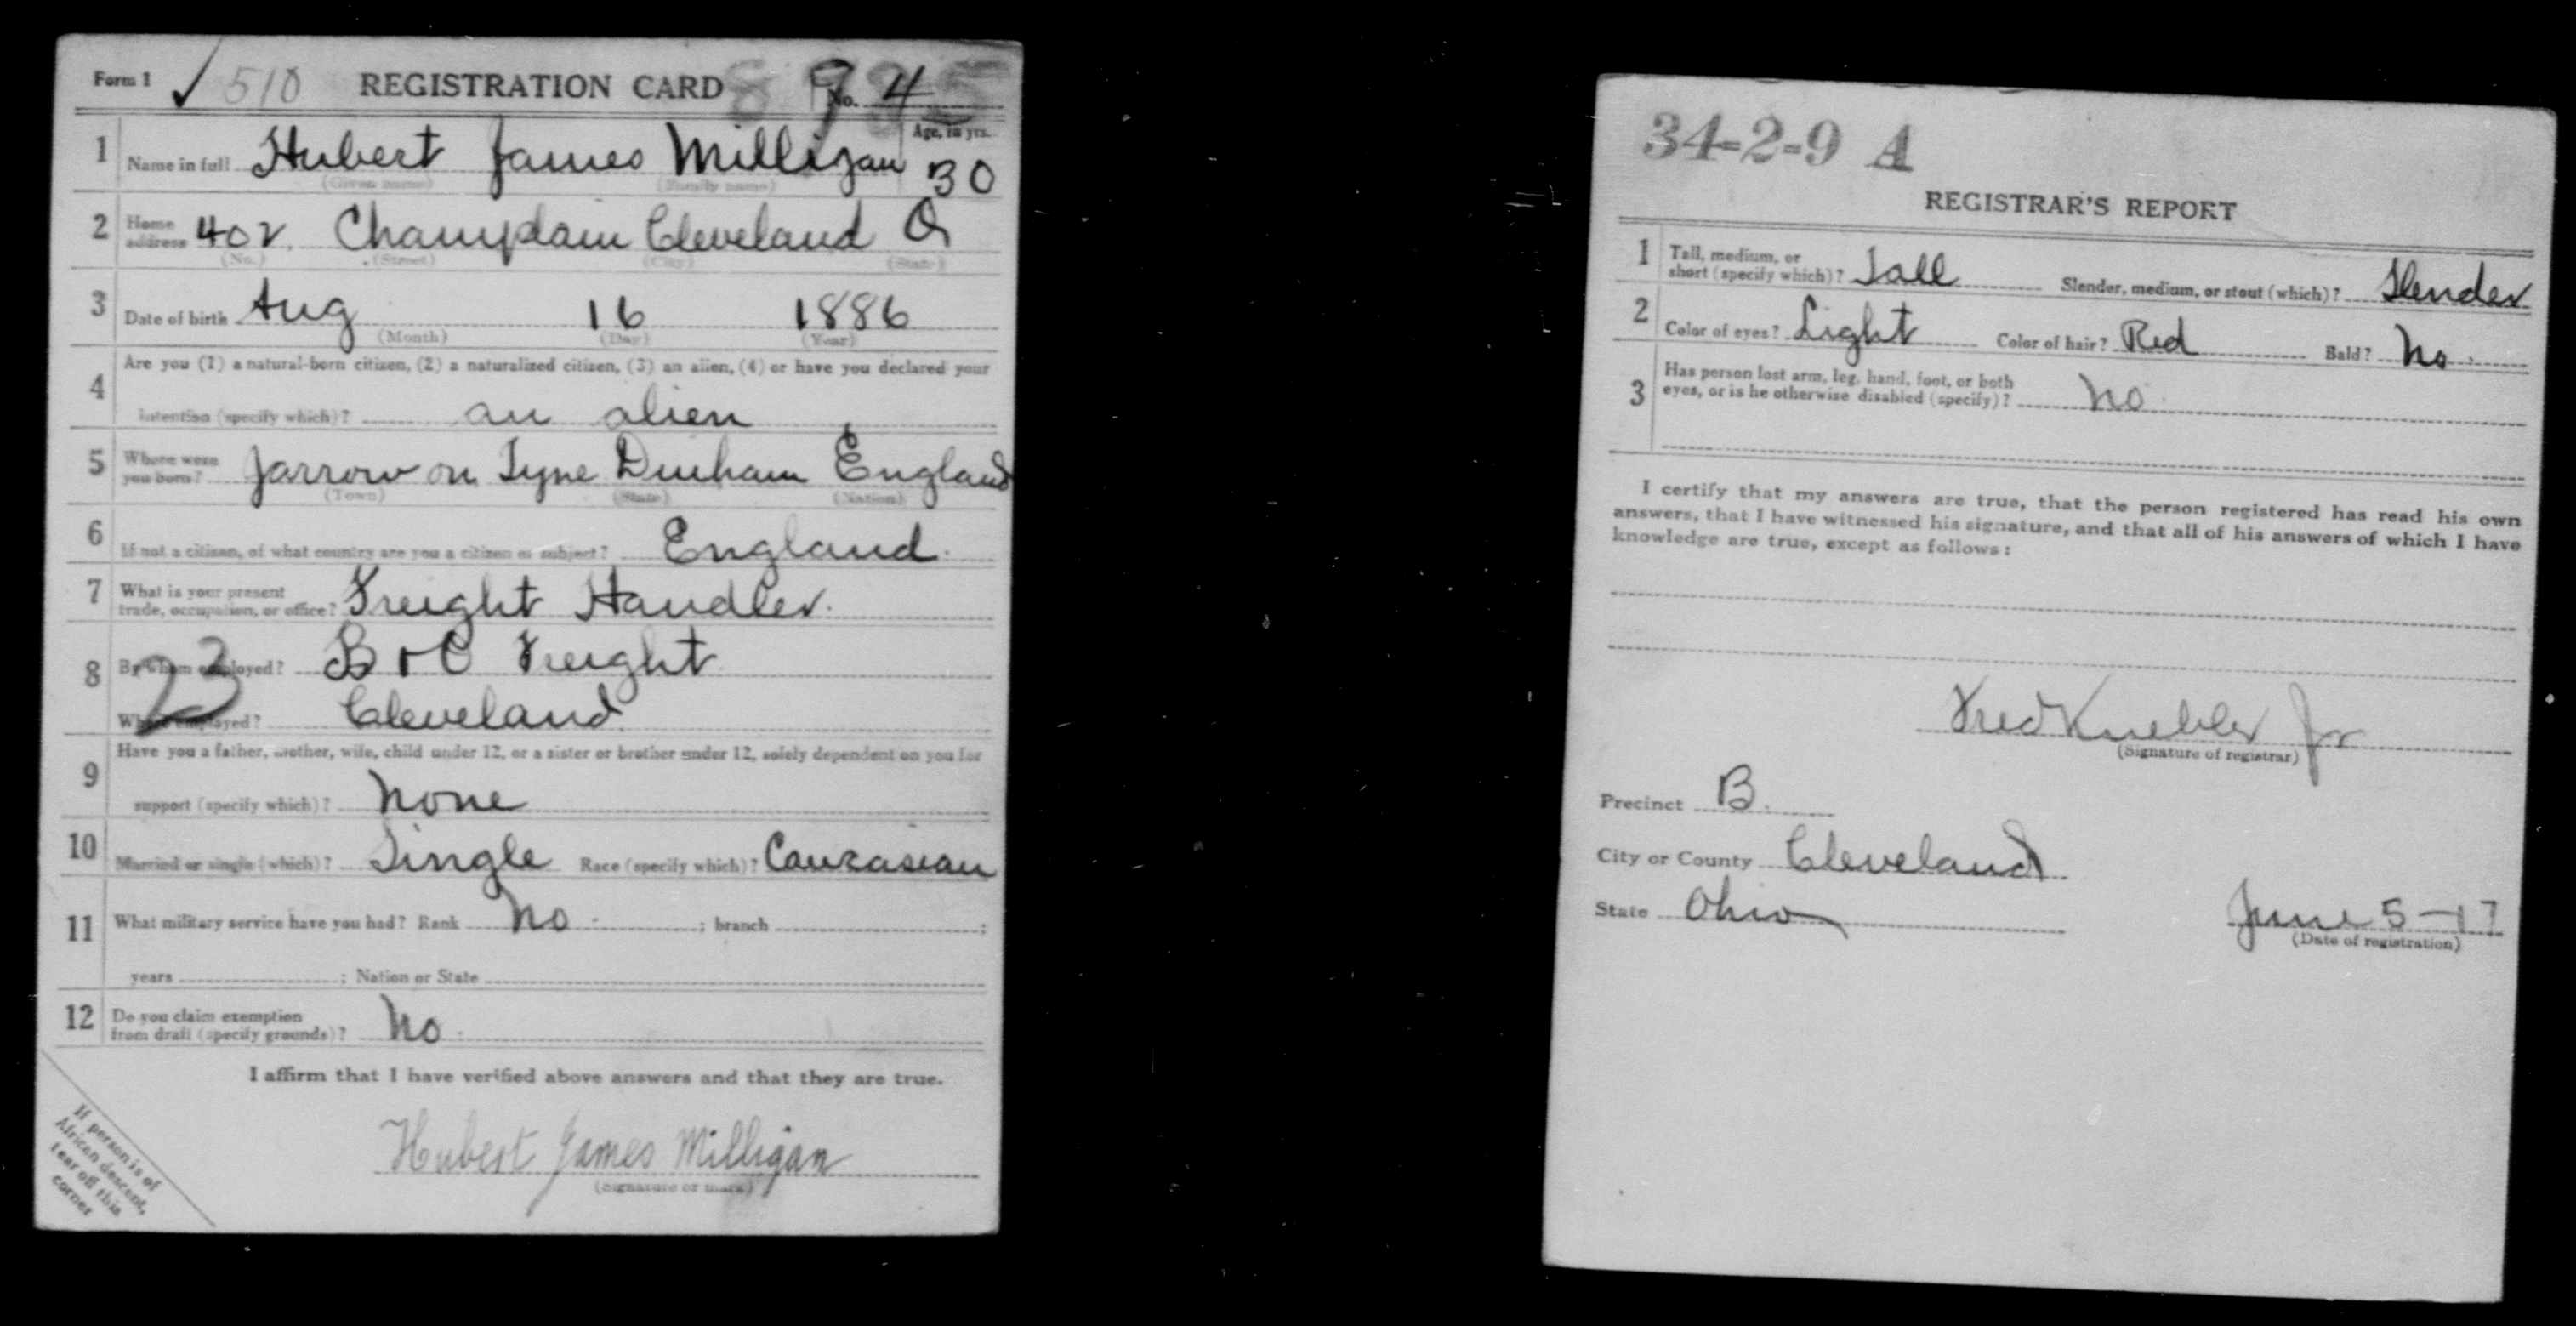 Form 1 ✓ 510 REGISTRATION CARD No. 4
1 Name in full Hubert James Milligan Age, in yrs. 30
(Given name) (Family name)
2 Home address 402 Champlain Cleveland O
(No.) (Street) (City) (State)
3 Date of birth Aug 16 1886
(Month) (Day) (Year)
4 Are you (1) a natural-born citizen, (2) a naturalized citizen, (3) an alien, (4) or have you declared your
intention (specify which)? an alien
5 Where were you born? Jarrow on Tyne Durham England
(Town) (State) (Nation)
6 If not a citizen, of what country are you a citizen or subject? England.
7 What is your present trade, occupation, or office? Freight Handler.
8 By whom employed? B + O Freight
23
Where employed? Cleveland.
9 Have you a father, mother, wife, child under 12, or a sister or brother under 12, solely dependent on you for
support (specify which)? None
10 Married or single (which)? Single Race (specify which)? Caucasian
11 What military service have you had? Rank No ; branch ;
years ; Nation or State
12 Do you claim exemption from draft (specify grounds)? No
I affirm that I have verified above answers and that they are true.
Hubert James Milligan
(Signature or mark)
If person is of
African descent,
tear off this
corner
34-2-9 A
REGISTRAR'S REPORT
1 Tall, medium, or short (specify which)? Tall Slender, medium, or stout (which)? Slender
2 Color of eyes? Light Color of hair? Red Bald? No.
3 Has person lost arm, leg, hand, foot, or both
eyes, or is he otherwise disabled (specify)? No
I certify that my answers are true, that the person registered has read his own
answers, that I have witnessed his signature, and that all of his answers of which I have
knowledge are true, except as follows:
Fred Kuebler Jr
(Signature of registrar)
Precinct B.
City or County Cleveland
State Ohio June 5-17
(Date of registration)